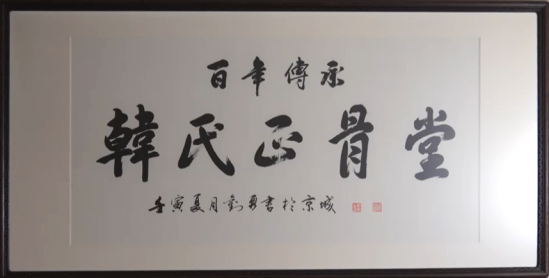 百年傳承
韓氏正骨堂
壬寅夏月劉勇書於京城